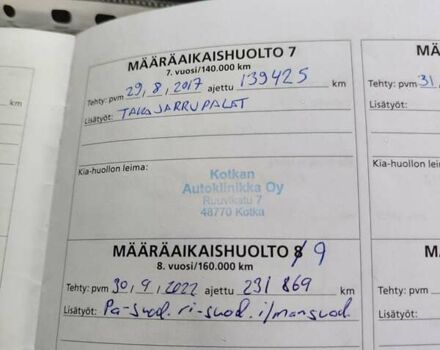 MÄÄRÄAIKAISHUOLTO 7
7. vuosi/140.000 km
Tehty: pvm 29,8,2017 ajettu 139425 km
Lisätyöt: TAKAJARRUPALAT
Kia-huollon leima:
Kotkan
Autoklinikka Oy
Ruuvikatu 7
48770 Kotka
MÄÄRÄAIKAISHUOLTO 8/9
8. vuosi/160.000 km
Tehty: pvm 30,9,2022 ajettu 231 869 km
Lisätyöt: Pa-suod. ri-suod. i/mansuod.
km
M
Tehty: pvm 31,
Lisätyöt:
Kia-huollon l
M
Tehty: pvm
Lisätyöt: